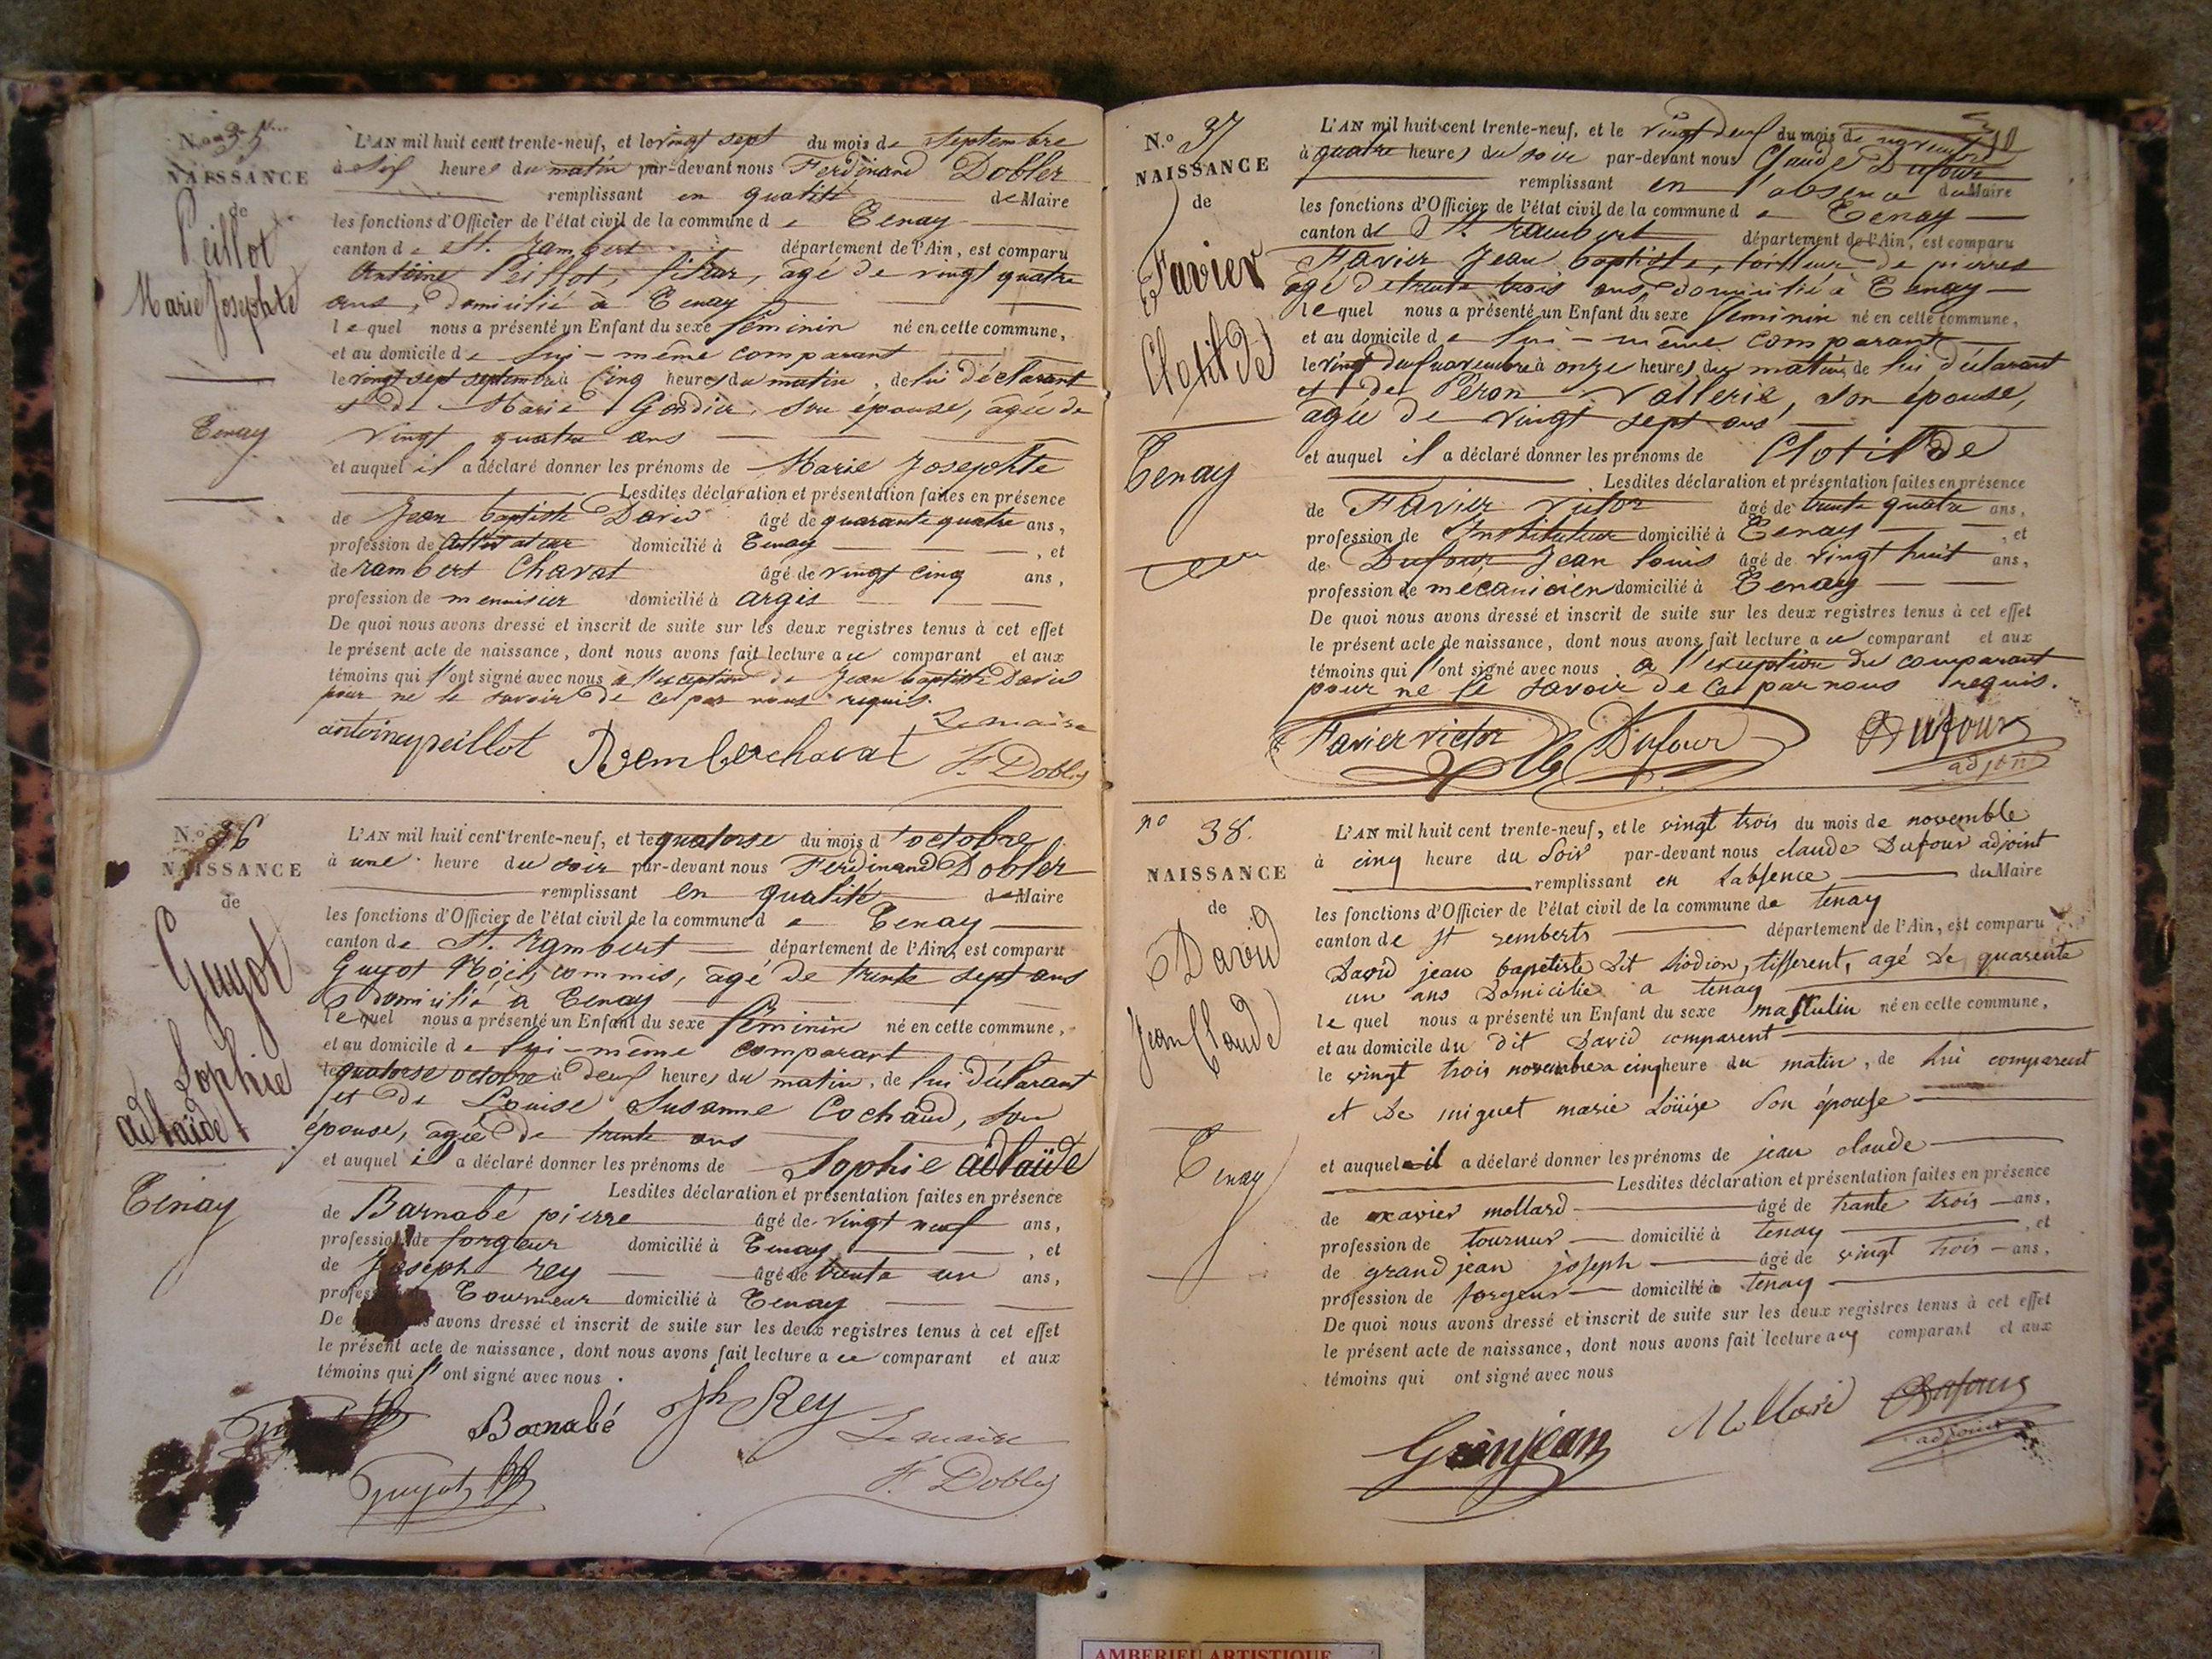 N.o 35
NAISSANCE
de
Peillot
Marie Josephte
Tenay
L'AN mil huit cent trente-neuf, et le vingt sept du mois de septembre
à heures du matin par-devant nous Ferdinand Dobler
remplissant en qualité de Maire
les fonctions d'Officier de l'état civil de la commune d e Tenay
canton d e St. Rambert département de l'Ain, est comparu
Antoine Peillot, âgé de vingt quatre
ans, domicilié à Tenay
l e quel nous a présenté un Enfant du sexe féminin né en cette commune,
et au domicile d e lui-même comparant
le vingt sept septembre à cinq heures du matin, de lui déclarant
et de Marie Gondier, son épouse, agée de
vingt quatre ans
et auquel il a déclaré donner les prénoms de Marie Josephte
Lesdites déclaration et présentation faites en présence
de Jean baptiste David âgé de quarante quatre ans,
profession de domicilié à Tenay , et
de rambert Chavat âgé de vingt cinq ans,
profession de menuisier domicilié à argis
De quoi nous avons dressé et inscrit de suite sur les deux registres tenus à cet effet
le présent acte de naissance, dont nous avons fait lecture a u comparant et aux
témoins qui l'ont signé avec nous à l'exception de Jean baptiste David
pour ne le savoir de ce par nous requis.
antoine peillot Remberchavat Le maire
F. Dobler
N.o 36
NAISSANCE
de
Guyot
Sophie
adlaïde
Tenay
L'AN mil huit cent trente-neuf, et le quatorse du mois d'octobre
à une heure du soir par-devant nous Ferdinand Dobler
remplissant en qualité de Maire
les fonctions d'Officier de l'état civil de la commune d e Tenay
canton d e St. Rambert département de l'Ain, est comparu
Guyot Noël, commis, agé de trente sept ans
domicilié à Tenay
l e quel nous a présenté un Enfant du sexe féminin né en cette commune,
et au domicile d e lui-même comparant
le quatorse octobre à deux heures du matin, de lui déclarant
et de Louise Susanne Cochaud, son
épouse, agée de trente ans
et auquel il a déclaré donner les prénoms de Sophie adlaïde
Lesdites déclaration et présentation faites en présence
de Barnabé pierre âgé de vingt neuf ans,
profession de forgeur domicilié à Tenay , et
de Joseph rey âgé de trente un ans,
profes Tourneur domicilié à Tenay
De avons dressé et inscrit de suite sur les deux registres tenus à cet effet
le présent acte de naissance, dont nous avons fait lecture a u comparant et aux
témoins qui l'ont signé avec nous.
Barnabé Jh Rey
Le maire
Guyot F. Dobler
N.o 37
NAISSANCE
de
Favier
Clotilde
Tenay
L'AN mil huit cent trente-neuf, et le vingt deux du mois de novembre
à quatre heures du soir par-devant nous Claude Dufour
remplissant en l'absence du Maire
les fonctions d'Officier de l'état civil de la commune d e Tenay
canton de St. rambert département de l'Ain, est comparu
Favier Jean baptiste, tailleur de pierres
agé de trente trois ans, domicilié à Tenay
l e quel nous a présenté un Enfant du sexe féminin né en cette commune,
et au domicile d e lui-même comparant
le vingt deux novembre à onze heures du matin, de lui déclarant
et de Péron Vallerie, son épouse,
agée de vingt sept ans
et auquel il a déclaré donner les prénoms de Clotilde
Lesdites déclaration et présentation faites en présence
de Favier victor âgé de trente quatre ans,
profession de Instituteur domicilié à Tenay , et
de Dufour Jean louis âgé de vingt huit ans,
profession de mecanicien domicilié à Tenay
De quoi nous avons dressé et inscrit de suite sur les deux registres tenus à cet effet
le présent acte de naissance, dont nous avons fait lecture a u comparant et aux
témoins qui l'ont signé avec nous a l'exeption du comparant
pour ne le savoir de ce par nous requis.
Favier victor Dufour Dufour
adjoint
no 38.
NAISSANCE
de
David
Jean Claude
Tenay
L'AN mil huit cent trente-neuf, et le vingt trois du mois de novemble
à cinq heure du soir par-devant nous claude Dufour adjoint
remplissant en Labsence du Maire
les fonctions d'Officier de l'état civil de la commune de tenay
canton de st remberts département de l'Ain, est comparu
David jean baptiste dit tisserent, agé de quarente
un ans Domicilie a tenay
le quel nous a présenté un Enfant du sexe masculin né en cette commune,
et au domicile du dit David comparent
le vingt trois novembre a cinq heure du matin, de lui comparent
et de miguet marie Loüise son épouse
et auquel il a déclaré donner les prénoms de jean claude
Lesdites déclaration et présentation faites en présence
de xavier mollard âgé de trante trois ans,
profession de tourneur domicilié à tenay , et
de grand jean joseph âgé de vingt trois ans,
profession de forgeur domicilié à tenay
De quoi nous avons dressé et inscrit de suite sur les deux registres tenus à cet effet
le présent acte de naissance, dont nous avons fait lecture aux comparant et aux
témoins qui ont signé avec nous
Granjean Mollard Dufour
adjoint
AMBERIEU ARTISTIQUE